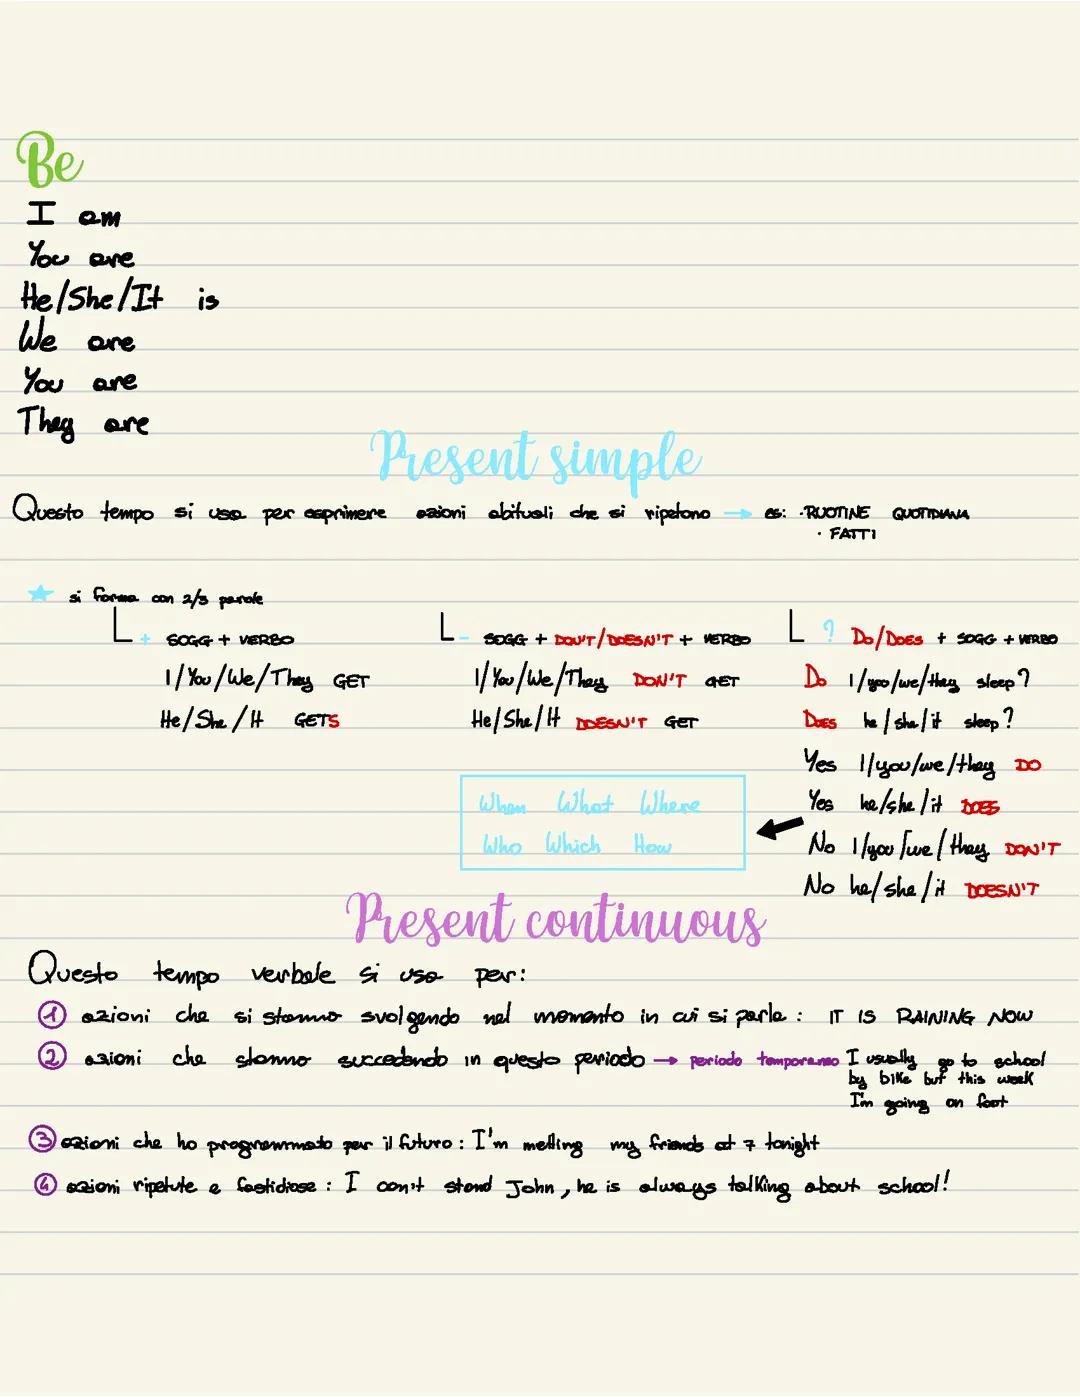 Be
I am
You are
He/She/It is
We are
You are
They are
Present simple
Questo tempo si usa per esprimere azioni abituali che si ripetono → es: · RUOTINE QUOTIDIANA
· FATTI
★ si forma con 2/3 parole
+ SOGG + VERBO
I/You/We/They GET
He/She/It GETS
- SOGG + DON'T/DOESN'T + VERBO
I/You/We/They DON'T GET
He/She/It DOESN'T GET
? Do/DOES + SOGG + VERBO
Do I/you/we/they sleep?
DOES he/she/it sleep?
Yes I/you/we/they DO
Yes he/she/it DOES
No I/you/we/they DON'T
No he/she/it DOESN'T
When What Where
Who Which How
Present continuous
Questo tempo verbale si usa per:
1 azioni che si stanno svolgendo nel momento in cui si parla : IT IS RAINING NOW
2 azioni che stanno succedendo in questo periodo → periodo temporaneo I usually go to school
by bike but this week
I'm going on foot
3 azioni che ho programmato per il futuro : I'm metting my friends at 7 tonight
4 azioni ripetute e fastidiose : I can't stand John, he is always talking about school!